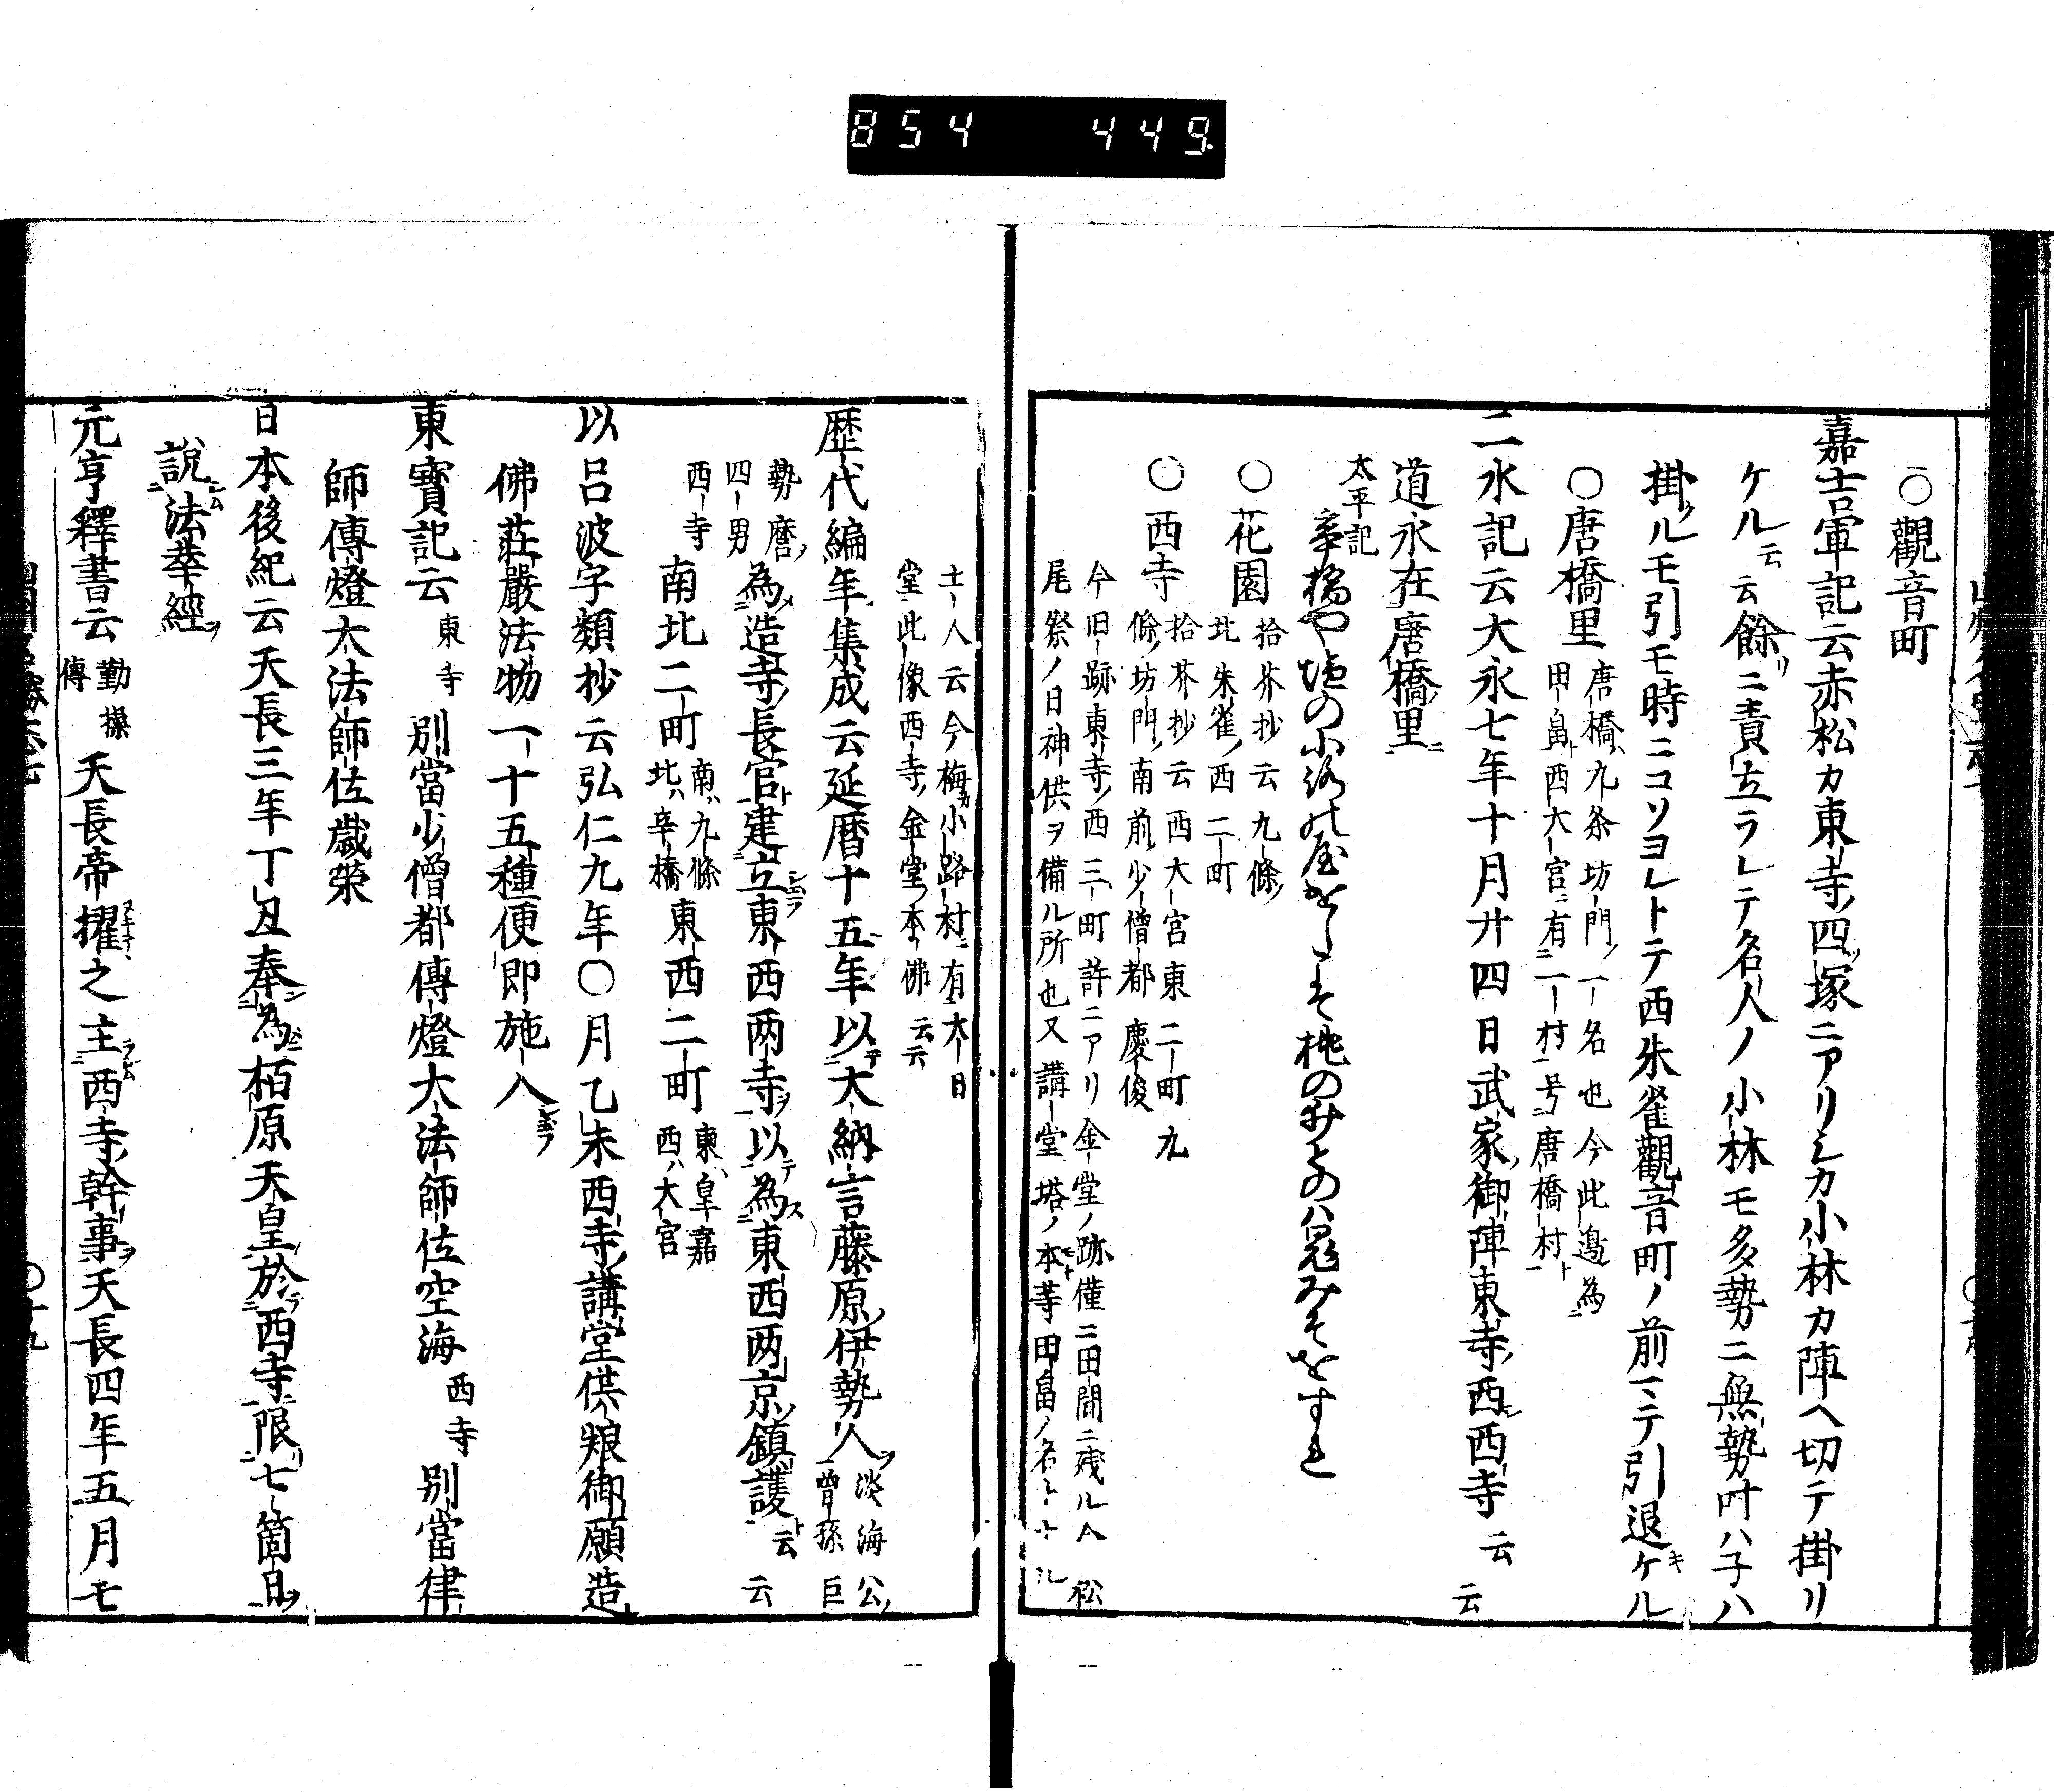 854 449
○觀音町
嘉吉軍記云赤松カ東寺ノ四ツ塚ニアリシカ小林カ陣ヘ切テ掛リ
ケル云云餘リニ責立ラレテ名人ノ小林モ多勢ニ無勢叶ハ子ハ
掛ルモ引モ時ニコソヨレトテ西朱雀觀音町ノ前ニテ引退キケル
○唐橋里 唐橋ハ九条坊門ノ一名也今此邊為
田畠ト西大宮ニ有二一村一号唐橋村ト
二水記云大永七年十月廿四日武家御陣東寺ノ西西寺云云
道永在唐橋ノ里ニ
太平記
○花園 拾芥抄云九條ノ
北朱雀ノ西二町
○西寺 拾芥抄云西大宮東二町九
條ノ坊門ノ南前少僧都慶俊
今旧跡東寺ノ西三町許ニアリ金堂ノ跡僅ニ田間ニ残ル今松
尾祭ノ日神供ヲ備ル所也又講堂塔ノ本等田畠ノ名トナレ
土人云今梅カ小路村ニ有大日
堂此像西寺ノ金堂ノ本佛云云
歴代編年集成云延暦十五年以大納言藤原ノ伊勢人ヲ 淡海公ノ
曾孫巨
勢麿ノ
四男 為造寺ノ長官ト建立東西两寺ヲ以為東西两京ノ鎮護ト云云
西寺 南北二町 南ハ九條
北ハ辛橋 東西二町 東ハ皇嘉
西ハ大宮
以呂波字類抄云弘仁九年○月乙未西寺ノ講堂供粮御願造
佛莊嚴法物一十五種便即施入
東寳記云 東寺 別當少僧都傳燈大法師位空海 西寺 別當律
師傳燈大法師位歳榮
日本後紀云天長三年丁丑奉為栢原天皇於西寺限七箇日ヲ
說法華經ヲ
元亨釋書云 勤操
傳 天長帝擢之主西寺ノ幹事ヲ天長四年五月七